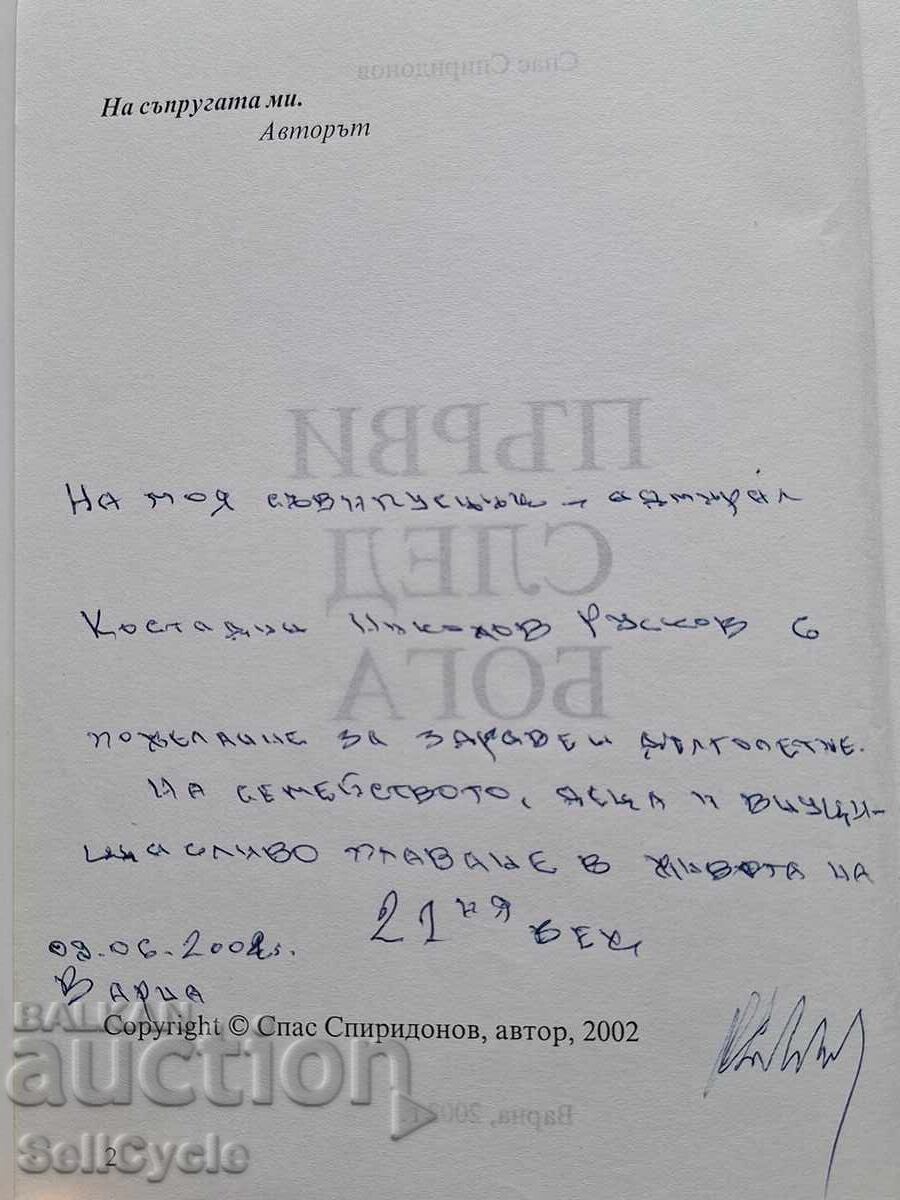 Спас Спиридонов
На съпругата ми.
Авторът
ПЪРВИ
На моя съвипускник – адмирал
СЛЕД
Костадин Николов Русков с
БОГА
пожелание за здраве и дълголетие.
На семейството, деца и внуци -
щасливо плаване в живота на
21ия век
09.06.2002г.
Варна
Copyright © Спас Спиридонов, автор, 2002
Варна, 2002 г.
2
BALKAN
auction
SellCycle